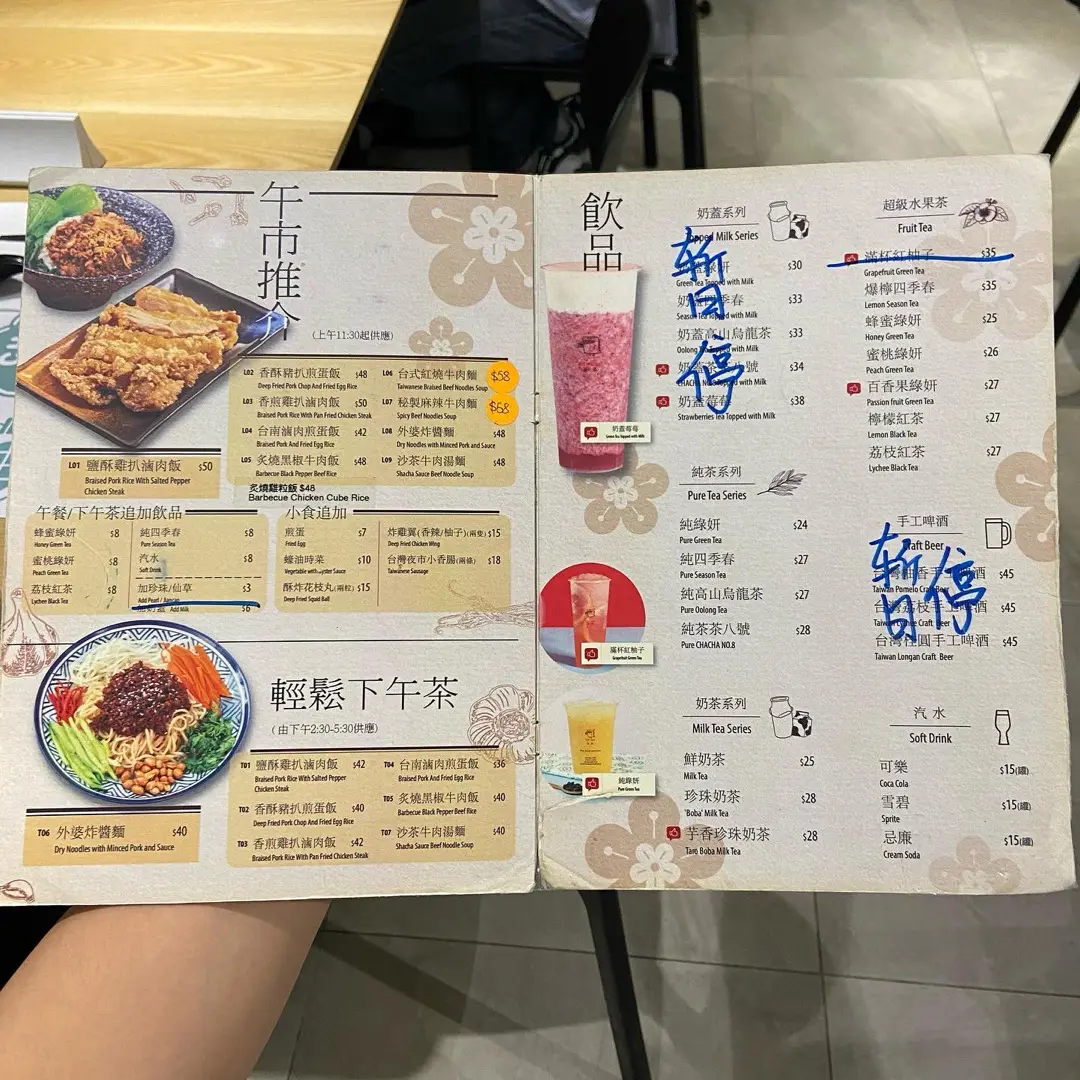 午市推介
(上午11:30起供應)
L02 香酥豬扒煎蛋飯 $48
Deep Fried Pork Chop And Fried Egg Rice
L03 香煎雞扒滷肉飯 $50
Braised Pork Rice With Pan Fried Chicken Steak
L04 台南滷肉煎蛋飯 $42
Braised Pork And Fried Egg Rice
L05 炙燒黑椒牛肉飯 $48
Barbecue Black Pepper Beef Rice
L06 台式紅燒牛肉麵 $58
Taiwanese Braised Beef Noodles Soup
L07 秘製麻辣牛肉麵 $68
Spicy Beef Noodles Soup
L08 外婆炸醬麵 $48
Dry Noodles with Minced Pork and Sauce
L09 沙茶牛肉湯麵 $48
Shacha Sauce Beef Noodle Soup
L01 鹽酥雞扒滷肉飯 $50
Braised Pork Rice With Salted Pepper
Chicken Steak
炙燒雞粒飯 $48
Barbecue Chicken Cube Rice
午餐/下午茶追加飲品
蜂蜜綠妍 $8
Honey Green Tea
蜜桃綠妍 $8
Peach Green Tea
荔枝紅茶 $8
Lychee Black Tea
純四季春 $8
Pure Season Tea
汽水 $8
Soft Drink
加珍珠/仙草 $3
Add Pearl /
$6
Add Milk
小食追加
煎蛋 $7
Fried Egg
蠔油時菜 $10
Vegetable with Oyster Sauce
酥炸花枝丸(兩粒) $15
Deep Fried Squid Ball
炸雞翼(香辣/柚子)(兩隻) $15
Deep Fried Chicken Wing
台灣夜市小香腸(兩條) $18
Taiwanese Sausage
輕鬆下午茶
(由下午2:30-5:30供應)
T01 鹽酥雞扒滷肉飯 $42
Braised Pork Rice With Salted Pepper
Chicken Steak
T02 香酥豬扒煎蛋飯 $40
Deep Fried Pork Chop And Fried Egg Rice
T03 香煎雞扒滷肉飯 $42
Braised Pork Rice With Pan Fried Chicken Steak
T04 台南滷肉煎蛋飯 $36
Braised Pork And Fried Egg Rice
T05 炙燒黑椒牛肉飯 $40
Barbecue Black Pepper Beef Rice
T07 沙茶牛肉湯麵 $40
Shacha Sauce Beef Noodle Soup
T06 外婆炸醬麵 $40
Dry Noodles with Minced Pork and Sauce
飲品
奶蓋莓莓
Green Tea Topped with Milk
滿杯紅柚子
Grapefruit Green Tea
純綠妍
Pure Green Tea
奶蓋系列
Topped Milk Series
暫停
奶蓋綠妍 $30
Green Tea Topped with Milk
奶蓋四季春 $33
Season Tea Topped with Milk
奶蓋高山烏龍茶 $33
Oolong Tea Topped with Milk
奶蓋茶茶八號 $34
CHACHA NO.8 Topped with Milk
奶蓋莓莓 $38
Strawberries Tea Topped with Milk
純茶系列
Pure Tea Series
純綠妍 $24
Pure Green Tea
純四季春 $27
Pure Season Tea
純高山烏龍茶 $27
Pure Oolong Tea
純茶茶八號 $28
Pure CHACHA NO.8
奶茶系列
Milk Tea Series
鮮奶茶 $25
Milk Tea
珍珠奶茶 $28
'Boba' Milk Tea
芋香珍珠奶茶 $28
Taro Boba Milk Tea
超級水果茶
Fruit Tea
滿杯紅柚子 $35
Grapefruit Green Tea
爆檸四季春 $35
Lemon Season Tea
蜂蜜綠妍 $25
Honey Green Tea
蜜桃綠妍 $26
Peach Green Tea
百香果綠妍 $27
Passion fruit Green Tea
檸檬紅茶 $27
Lemon Black Tea
荔枝紅茶 $27
Lychee Black Tea
手工啤酒
Craft Beer
暫停
台灣柚香手工啤酒 $45
Taiwan Pomelo Craft Beer
台灣荔枝手工啤酒 $45
Taiwan Lychee Craft Beer
台灣桂圓手工啤酒 $45
Taiwan Longan Craft Beer
汽水
Soft Drink
可樂 $15(罐)
Coca Cola
雪碧 $15(罐)
Sprite
忌廉 $15(罐)
Cream Soda